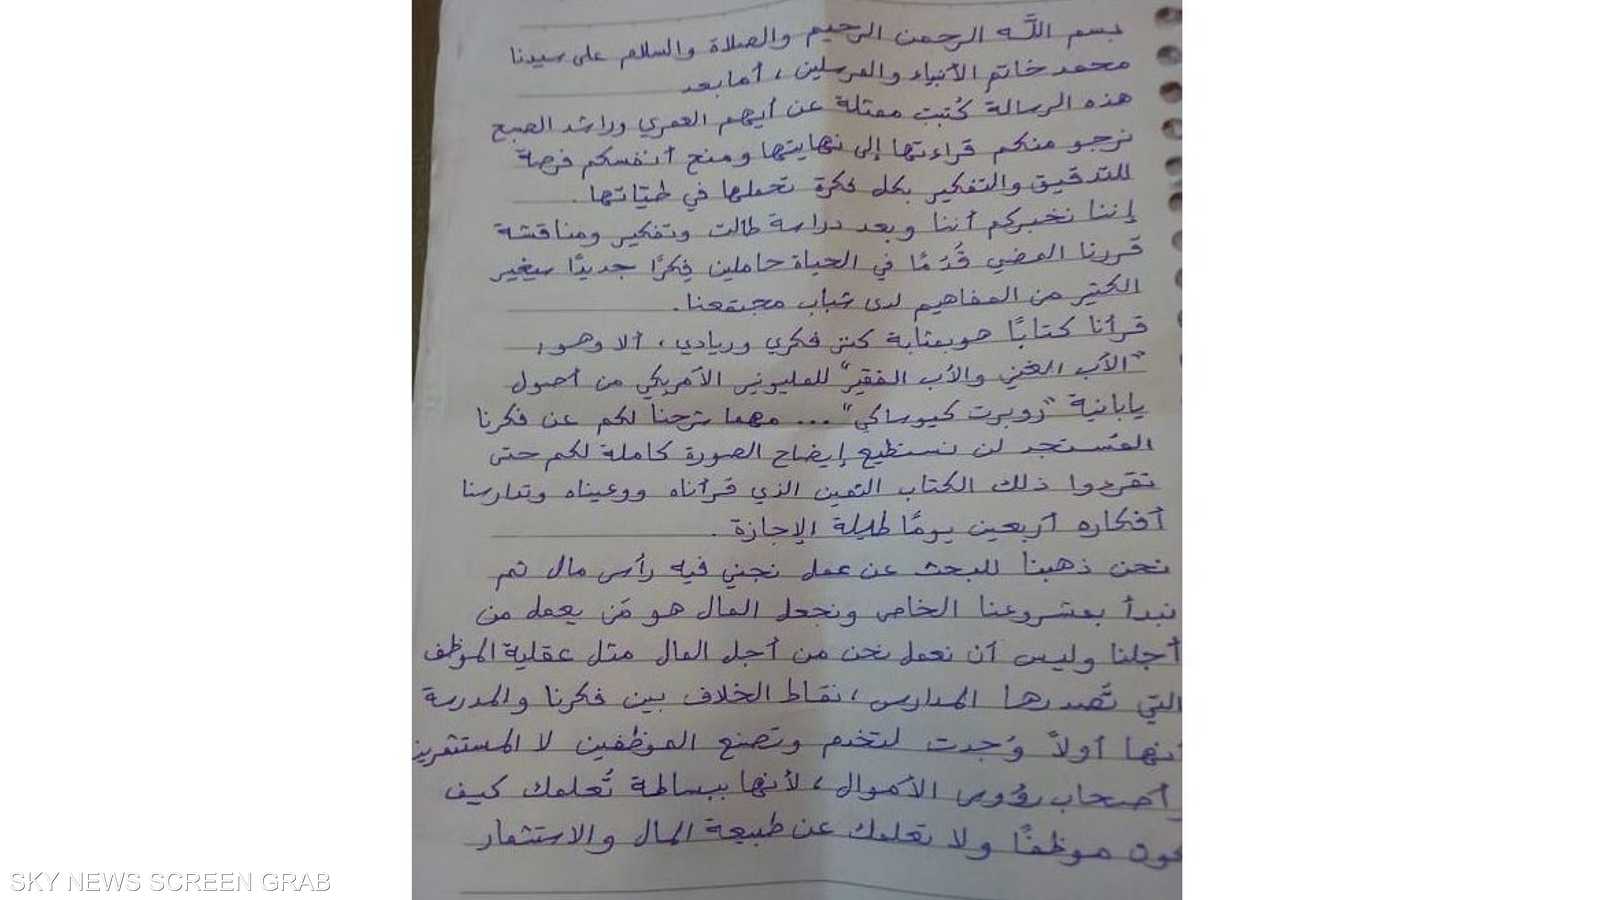 بسم الله الرحمن الرحيم والصلاة والسلام على سيدنا
محمد خاتم الأنبياء والمرسلين ، أما بعد
هذه الرسالة كُتبت ممثلة عن أيهم العمري وراشد الصبح
نرجو منكم قراءتها إلى نهايتها ومنح أنفسكم فرصة
للتدقيق والتفكير بكل فكرة تحملها في طيّاتها .
إننا نخبركم أننا وبعد دراسة طالت وتفكير ومناقشة
قررنا المضي قُدُمًا في الحياة حاملين فِكرًا جديدًا سيغير
الكثير من المفاهيم لدى شباب مجتمعنا .
قرأنا كتابًا هو بمثابة كنز فكري وريادي ، ألا وهو :
"الأب الغني والأب الفقير" للمليونير الأمريكي من أصول
يابانية "روبرت كيوساكي" ... مهما شرحنا لكم عن فكرنا
المُستجد لن نستطيع إيضاح الصورة كاملة لكم حتى
تقرءوا ذلك الكتاب الثمين الذي قرأناه ووعيناه وتدارسنا
أفكاره أربعين يومًا طيلة الإجازة .
نحن ذهبنا للبحث عن عمل نجني فيه رأس مال ثم
نبدأ بمشروعنا الخاص ونجعل المال هو مَن يعمل من
أجلنا وليس أن نعمل نحن من أجل المال مثل عقلية الموظف
التي تُصدرها المدارس ، نقاط الخلاف بين فكرنا والمدرسة
أنها أولاً وُجدت لتخدم وتصنع الموظفين لا المستثمرين
وأصحاب رؤوس الأموال ، لأنها ببساطة تُعلمك كيف
تكون موظفًا ولا تعلمك عن طبيعة المال والاستثمار
SKY NEWS SCREEN GRAB